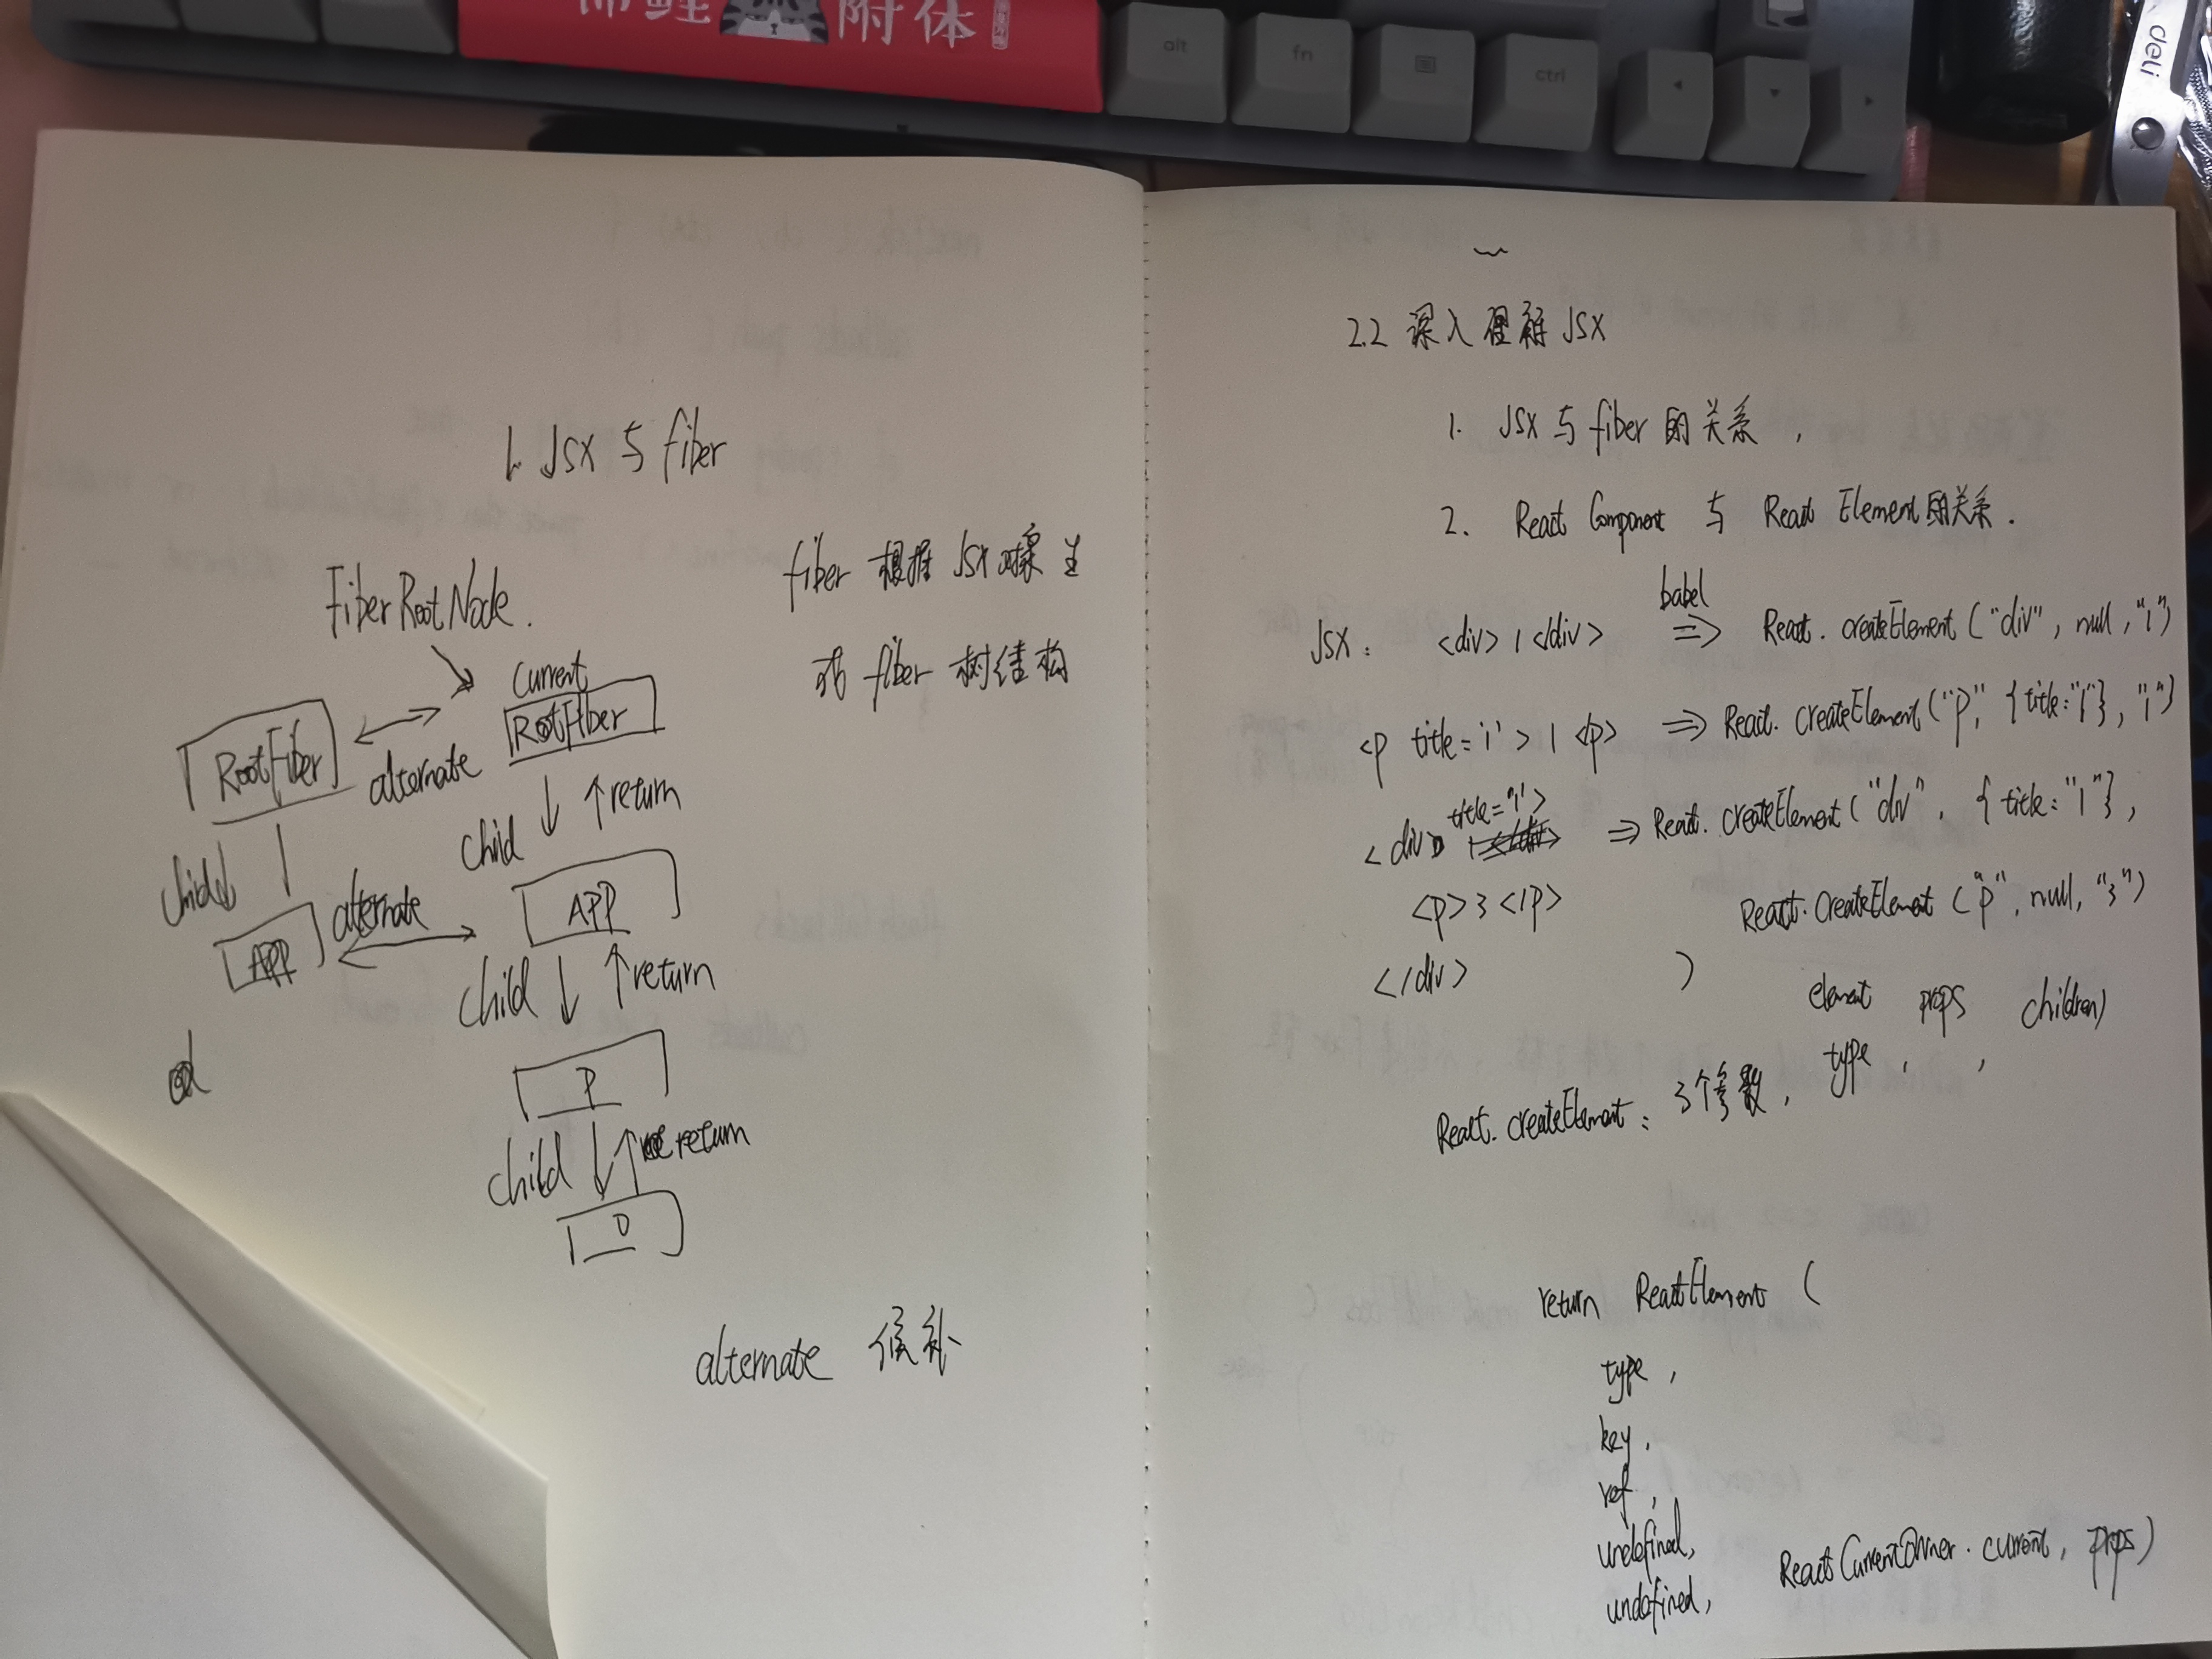 附体
alt
fn
ctrl
deli
1. JSX 与 fiber
fiber 根据 JSX 对象 生
成 fiber 树结构
FiberRootNode.
current
RootFiber
RootFiber
alternate
child
return
child
alternate
APP
APP
child
return
P
child
return
0
alternate 候补
2.2 深入理解 JSX
1. JSX 与 fiber 的关系,
2. React Component 与 React Element 的关系.
babel
JSX: <div> 1 </div> => React.createElement("div", null, "1")
<p title='1'> 1 <p> => React.createElement("p", {title:"1"}, "1")
title="1">
<div => React.createElement("div", {title:"1"},
<p>3</p> React.createElement("p", null, "3")
</div> )
element props children)
React.createElement: 3个参数, type , ,
return ReactElement (
type,
key,
ref,
undefined,
undefined, ReactCurrentOwner.current, props)